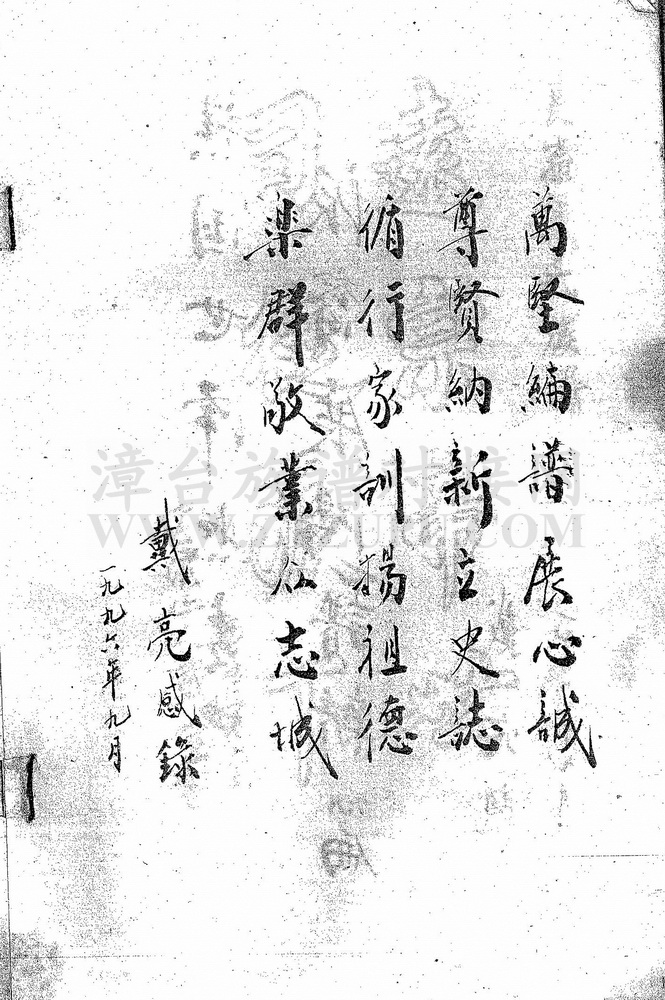 萬堅編譜展心誠
尊賢納新立史誌
循行家訓揚祖德
楽群敬業众志城
戴亮感錄
一九九六年九月
漳台族谱对接网